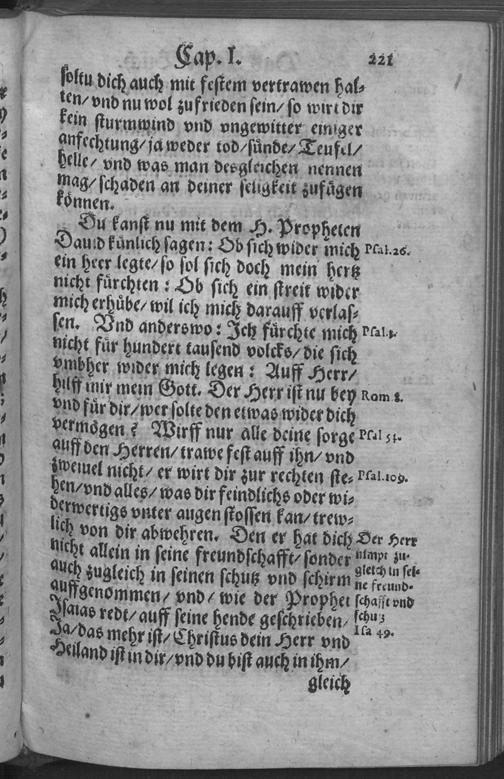 Cap. I. 221
soltu dich auch mit festem vertrawen hal-
ten/ vnd nu wol zu frieden sein/ so wirt dir
kein sturmwind vnd vngewitter einiger
anfechtung/ ja weder tod/ sünde/ Teufel/
helle/ vnd was man desgleichen nennen
mag/ schaden an deiner seligkeit zufügen
können.
Du kanst nu mit dem H. Propheten
Dauid künlich sagen: Ob sich wider mich
Psal. 26.
ein heer legte/ so sol sich doch mein hertz
nicht fürchten: Ob sich ein streit wider
mich erhübe/ wil ich mich darauff verlas-
sen. Vnd anderswo: Ich fürchte mich
Psal. 3.
nicht für hundert tausend volcks/ die sich
vmbher wider mich legen: Auff Herr/
hilff mir mein Gott. Der Herr ist nu bey
Rom 8.
vnd für dir/ wer solte den etwas wider dich
vermögen? Wirff nur alle deine sorge
Psal 54.
auff den Herren/ trawe fest auff ihn/ vnd
zweiuel nicht/ er wirt dir zur rechten ste-
Psal. 109.
hen/ vnd alles/ was dir feindlichs oder wi-
derwertigs vnter augen stossen kan/ trew-
lich von dir abwehren. Den er hat dich
Der Herr
nicht allein in seine freundschafft/ sonder
nimpt zu-
auch zugleich in seinen schutz vnd schirm
gleich in sei-
ne freund-
auffgenommen/ vnd/ wie der Prophet
schafft vnd
Isaias redt/ auff seine hende geschrieben/
schutz
Isa 49.
Ja/ das mehr ist/ Christus dein Herr vnd
Heiland ist in dir/ vnd du bist auch in ihm/
gleich